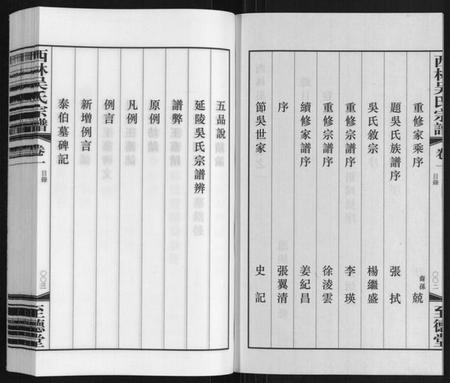 西林吳氏宗譜
卷一
目錄
〇〇二
至德堂
重修家乘序 裔孫 兢
題吳氏族譜序 張拭
吳氏敘宗 楊繼盛
重修宗譜序 李瑛
重修宗譜序 徐淩雲
續修家譜序 姜紀昌
序 張翼清
節吳世家 史記
五品說
延陵吳氏宗譜辨
譜弊
原例
凡例
例言
新增例言
泰伯墓碑記
西林吳氏宗譜
卷一
目錄
至德堂